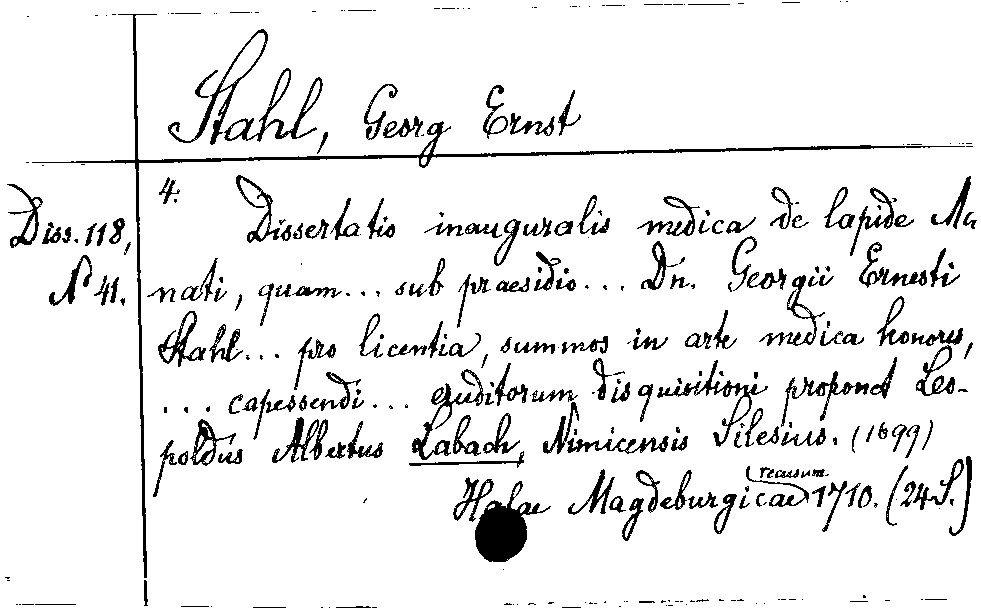 Stahl, Georg Ernst
4.
Diss. 118, Dissertatio inauguralis medica de lapide Ma
N° 41. nati, quam... sub praesidio... Dn. Georgii Ernesti
Stahl... pro licentia, summos in arte medica honores,
... capessendi... eruditorum disquisitioni proponet Leo-
poldus Albertus Labach, Nimicensis Silesius. (1699)
recusum
Halae Magdeburgicae 1710. (24 S.)